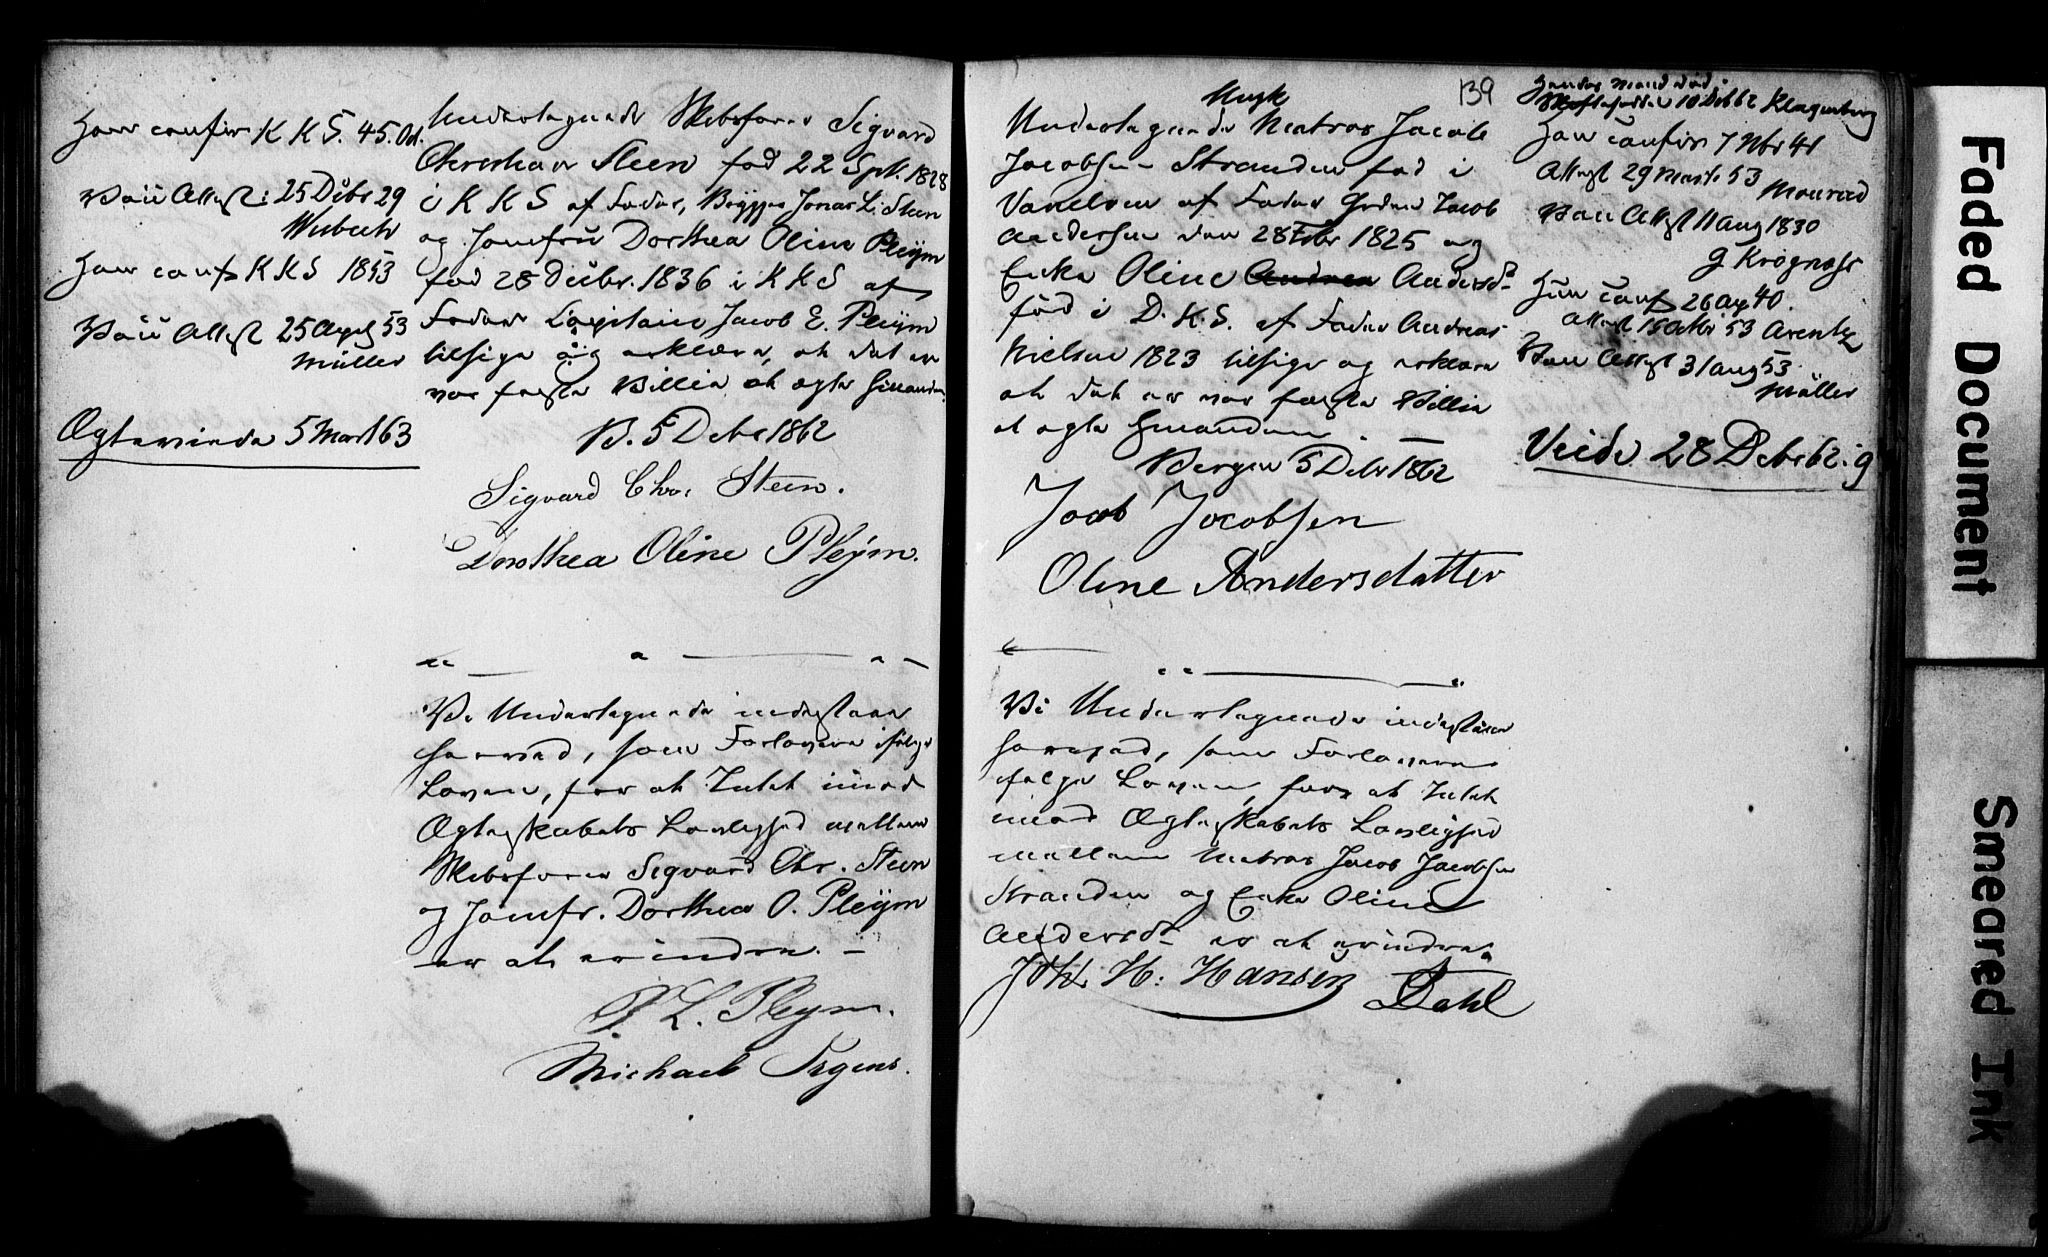 Han confir K K S. 45. Oct.
Vac: Attest: 25 Dcbr 29
Wubech
Hun conf K K S 1853
Vac: Attest 25 Apl 53
Müller
Ægteviede 5 Mart 63
Undertegnede Skibsfører Sigvard
Christian Steen fød 22 Spt. 1828
i K K S af Fader, Brygger Jonas L. Steen
og Jomfru Dorthea Oline Pleÿm
fød 28 Decbr. 1836 i K K S af
Fader Capitain Jacob E. Pleÿm
tilsige og erklære, at det er
vor faste Villie at ægte hinanden.
B. 5 Debr 1862
Sigvard Chr. Steen.
Dorthea Oline Pleÿm.
Vi Undertegnede indestaae
herved, som Forlovere ifølge
Loven, for at Intet imod
Ægteskabets Lovlighed mellem
Skibsfører Sigvard Chr. Steen
og Jomfr. Dorthea O. Pleÿm
er at erindre. –
P. L. Pleym.
Michael Irgens.
139
Ungk
Undertegnede Matros Jacob
Jacobsen Stranden fød i
af Fader Jacob
Andersen den 28 Febr 1825 og
Enke Oline Andrea Andersd
fød i D. K. S. af Fader Andreas
Nielsen 1823 tilsige og erklære
at det er vor faste Villie
at ægte hinanden.
Bergen 5 Debr 1862
Jacob Jacobsen
Oline Andersdatter
Vi Undertegnede indestaae
herved, som Forlovere
ifølge Loven, for at Intet
imod Ægteskabets Lovlighed
mellem Matros Jacob Jacobsen
Stranden og Enke Oline
Andersdt er at erindre.
Joh. H. Hansen Dahl
Hendes Mand død
10 Dcb 62 Klagenberg
Han confir 7 Nbr 41
Attest 29 Marts 53 Monrad
Vac Attest 11 Aug 1830
G Krogness
Hun conf 26 Apr 40.
Attest 15 Octbr 53 Arentz
Vac Attest 31 Aug 53
Müller
Viede 28 Debr 62. g
Faded Document
Smeared Ink